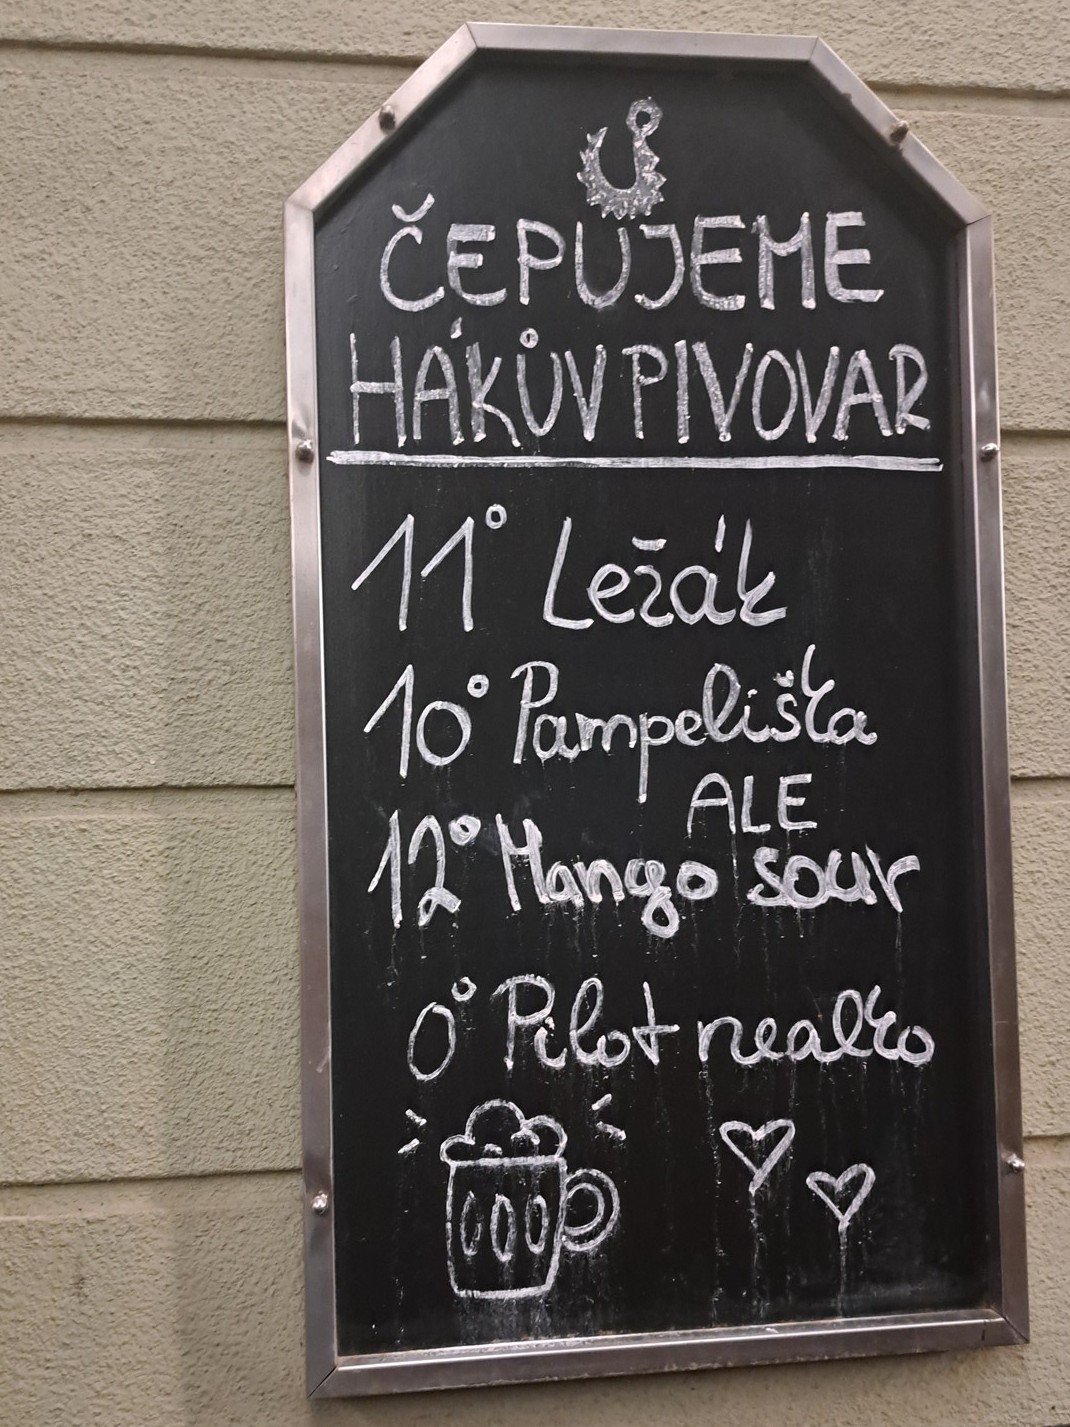 ČEPUJEME
HÁKŮV PIVOVAR
11° Ležák
10° Pampeliška
ALE
12° Mango sour
0° Pilot nealko